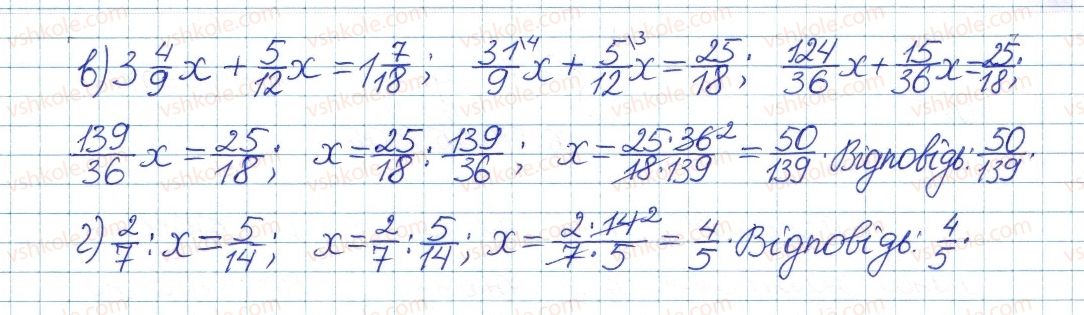 в) 3 4/9 x + 5/12 x = 1 7/18; 31\4/9 x + 5\3/12 x = 25/18; 124/36 x + 15/36 x = 25/18;
139/36 x = 25/18; x = 25/18 : 139/36; x = 25·36²/18·139 = 50/139. Відповідь: 50/139.
г) 2/7 : x = 5/14; x = 2/7 : 5/14; x = 2·14²/7·5 = 4/5. Відповідь: 4/5.